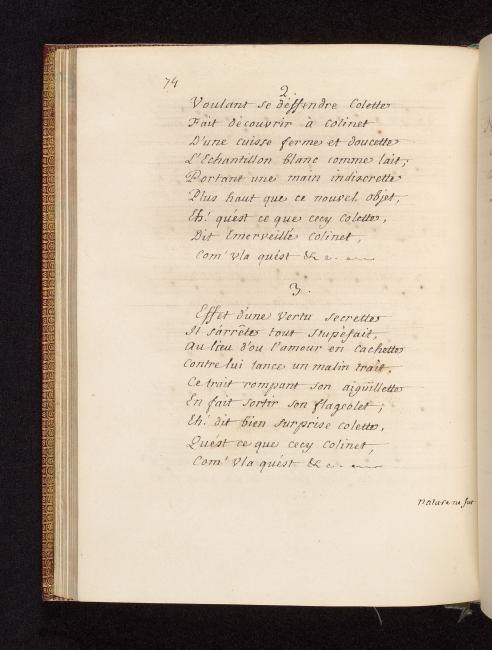 74
2.
Voulant se déffendre Colette
Fait découvrir à Colinet
D'une cuisse ferme et doucette
L'Echantillon blanc comme lait,
Portant une main indiscrette
Plus haut que ce nouvel objet,
Eh! qu'est ce que cecy Colette,
Dit Emerveillé Colinet,
Com' v'la qu'est &c.
3.
Effet d'une vertu secrette
Il s'arrête tout stupéfait,
Au lieu d'ou l'amour en cachette
Contre lui lance un malin trait.
Ce trait rompant son aigüillette
En fait sortir son flageolet;
Eh! dit bien surprise Colette,
Qu'est ce que cecy Colinet,
Com' v'la qu'est &c.
nature ne fut